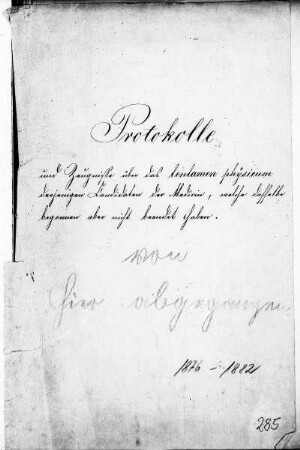 Protokolle
und Zeugnisse über das tentamen physicum
derjenigen Candidaten der Medicin, welche dasselbe
begonnen aber nicht beendet haben.
von
hier abgegangen
1876 - 1882
285